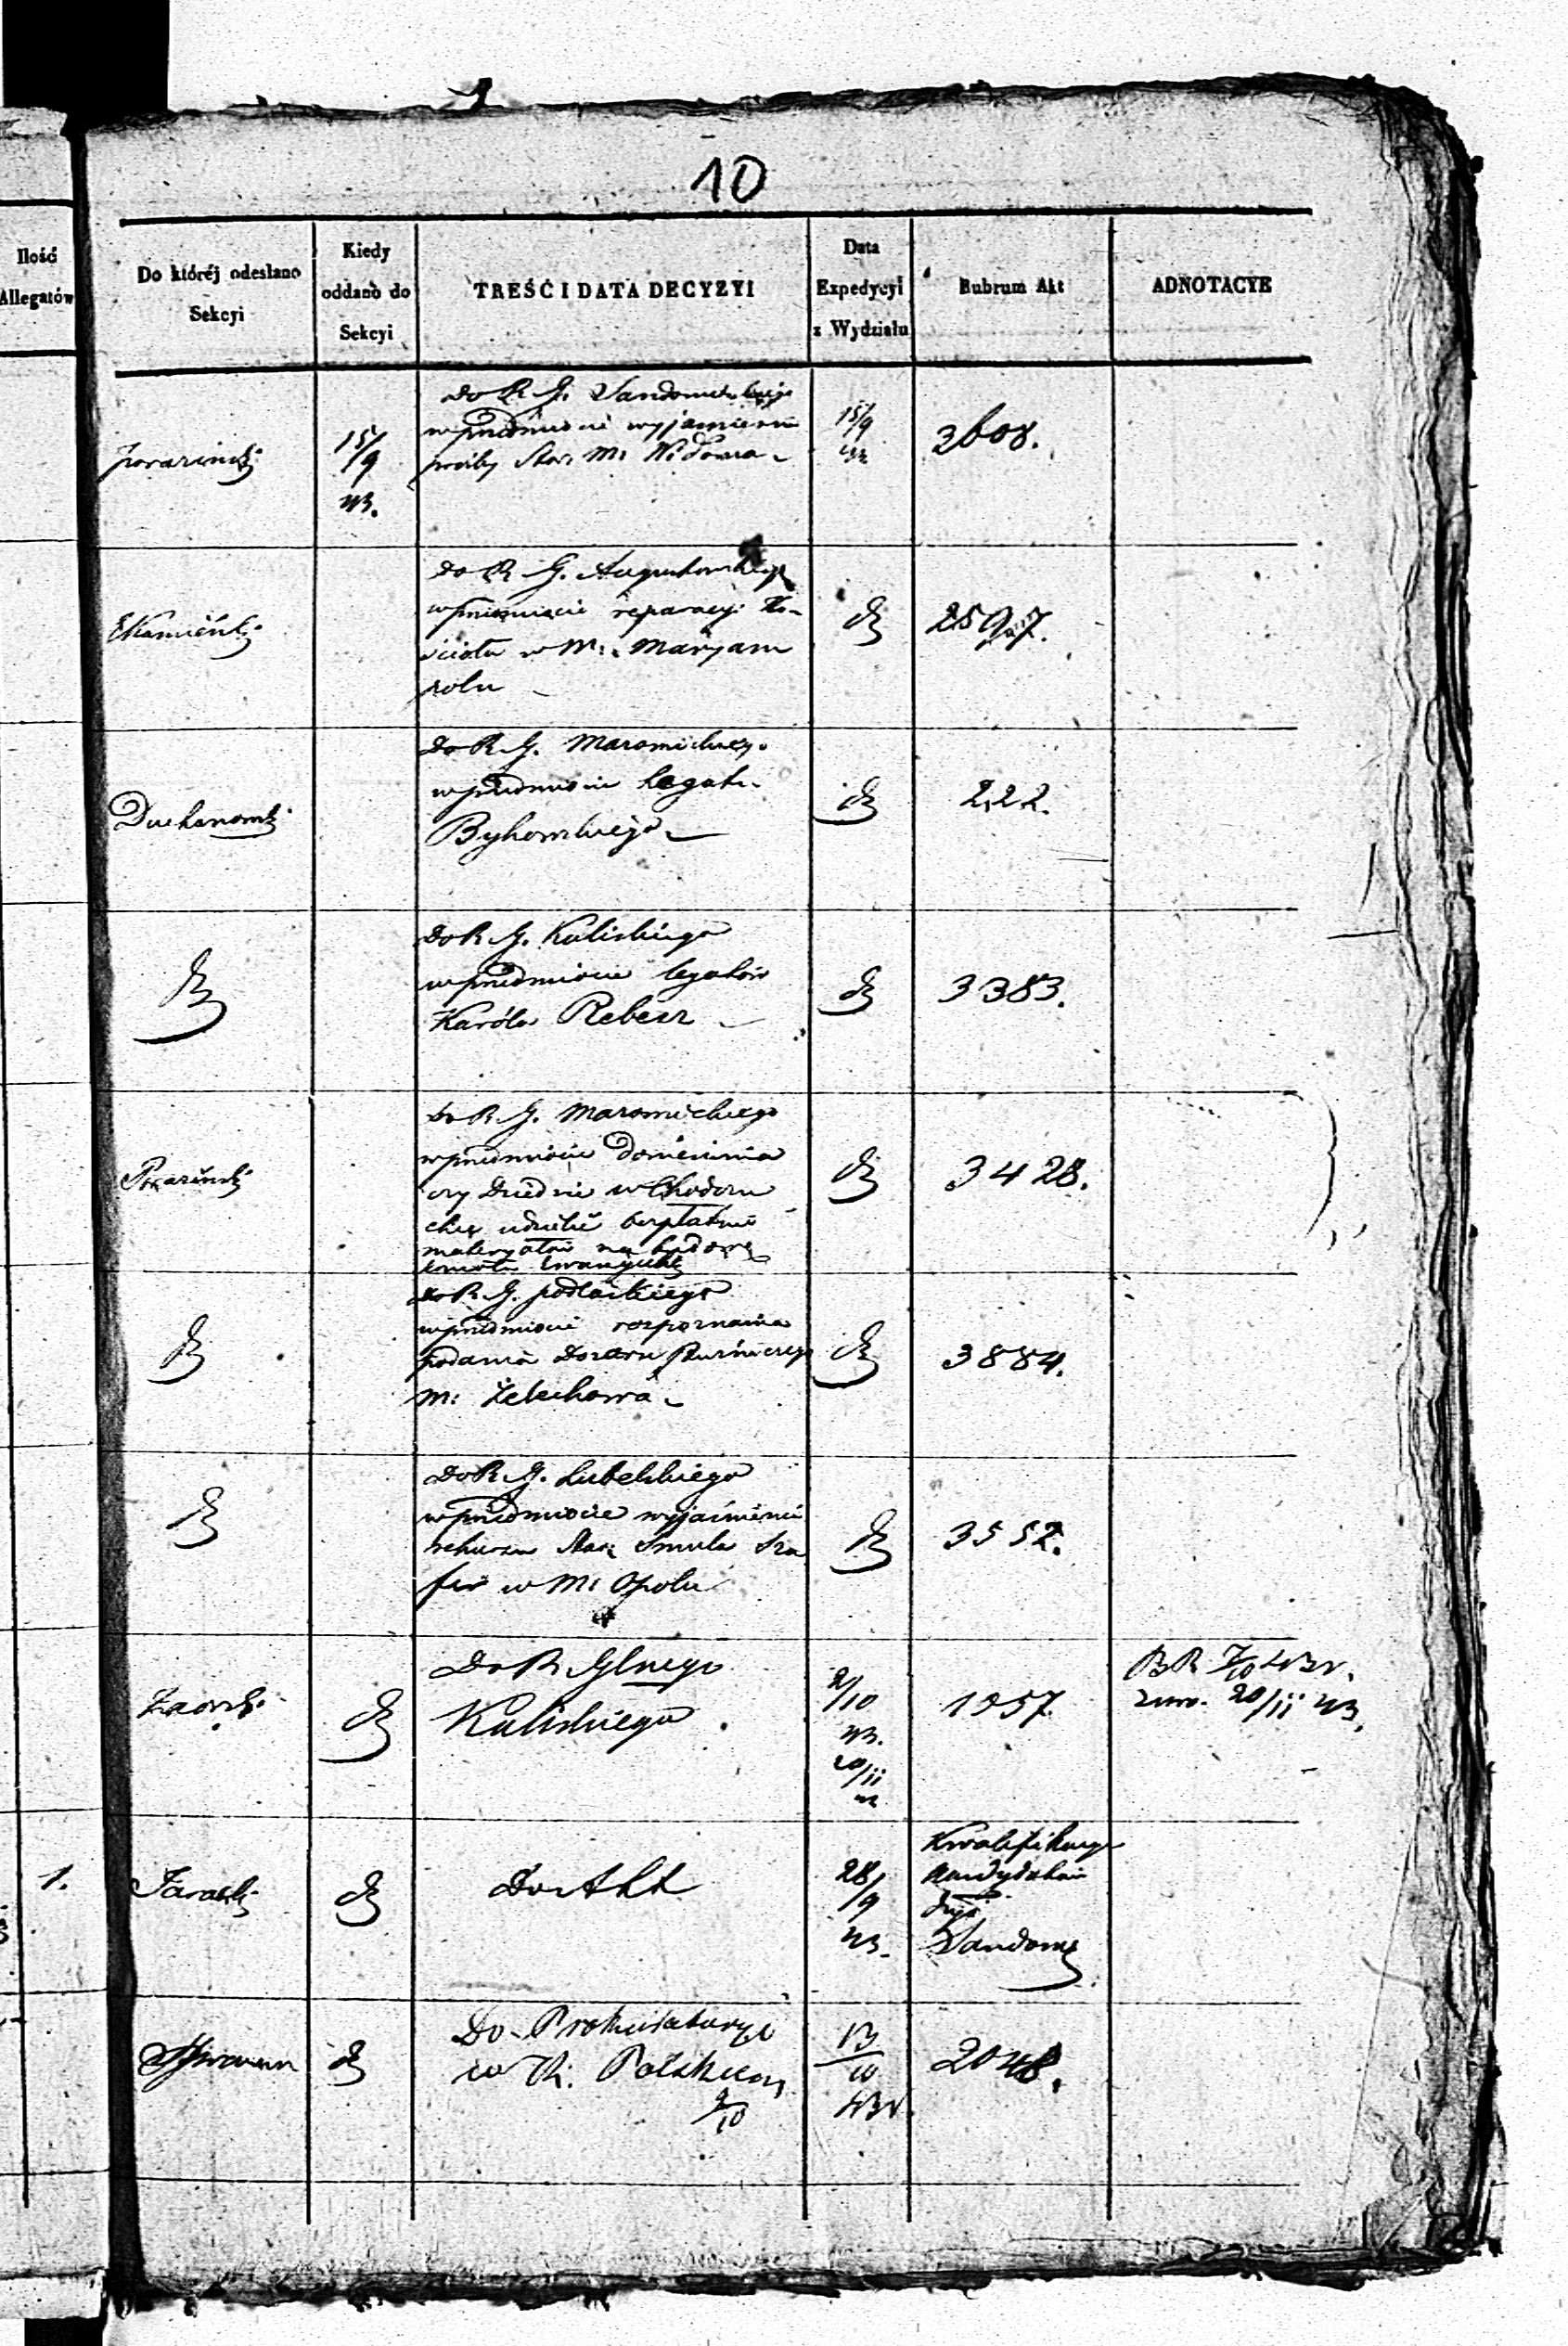 10
Ilość
Allegatów
Do której odesłano
Sekcyi
Kiedy
oddano do
Sekcyi
TREŚĆ I DATA DECYZYI
Data
Expedycyi
z Wydziału
Rubrum Akt
ADNOTACYE
15/9
43.
Do R. G. Sandomirskiego
w przedmiocie wyjaśnienia
prośby Star. M.
15/9
43
3608.
Kamiński
Do R. G. Augustowskiego
w przedmiocie reparacyi Ko-
ścioła w M. Maryam
polu
2597.
Duchanowski
Do R. G. Mazowieckiego
w przedmiocie legatu
Bykowskiego
222.
Do R. G. Kaliskiego
w przedmiocie legatów
Karóla Rebesz
3383.
Do R. G. Mazowieckiego
w przedmiocie doniesienia
czy Dziedzic w Chodczu
chce udzielić bezpłatnie
materyałów na budowę
Ewangelick
3428.
Do R. G. Podlaskiego
w przedmiocie rozpoznania
podania Dozoru Bużniczego
M. Żelechowa
3884.
Do R. G. Lubelskiego
w przedmiocie wyjaśnienia
rekursu Star. Smula Sza
fir w M. Opolu
3552.
Do R. Glnego
Kaliskiego
2/10
43.
20/11
43
1057.
BR 7/10 43 r.
20/11 43.
1.
Do Akt
28/9
43.
Kwalifikacye
Kandydatów
Sandom
Do Prokuratoryi
w K. Polskiem
9/10
13/10
43 r.
2048.